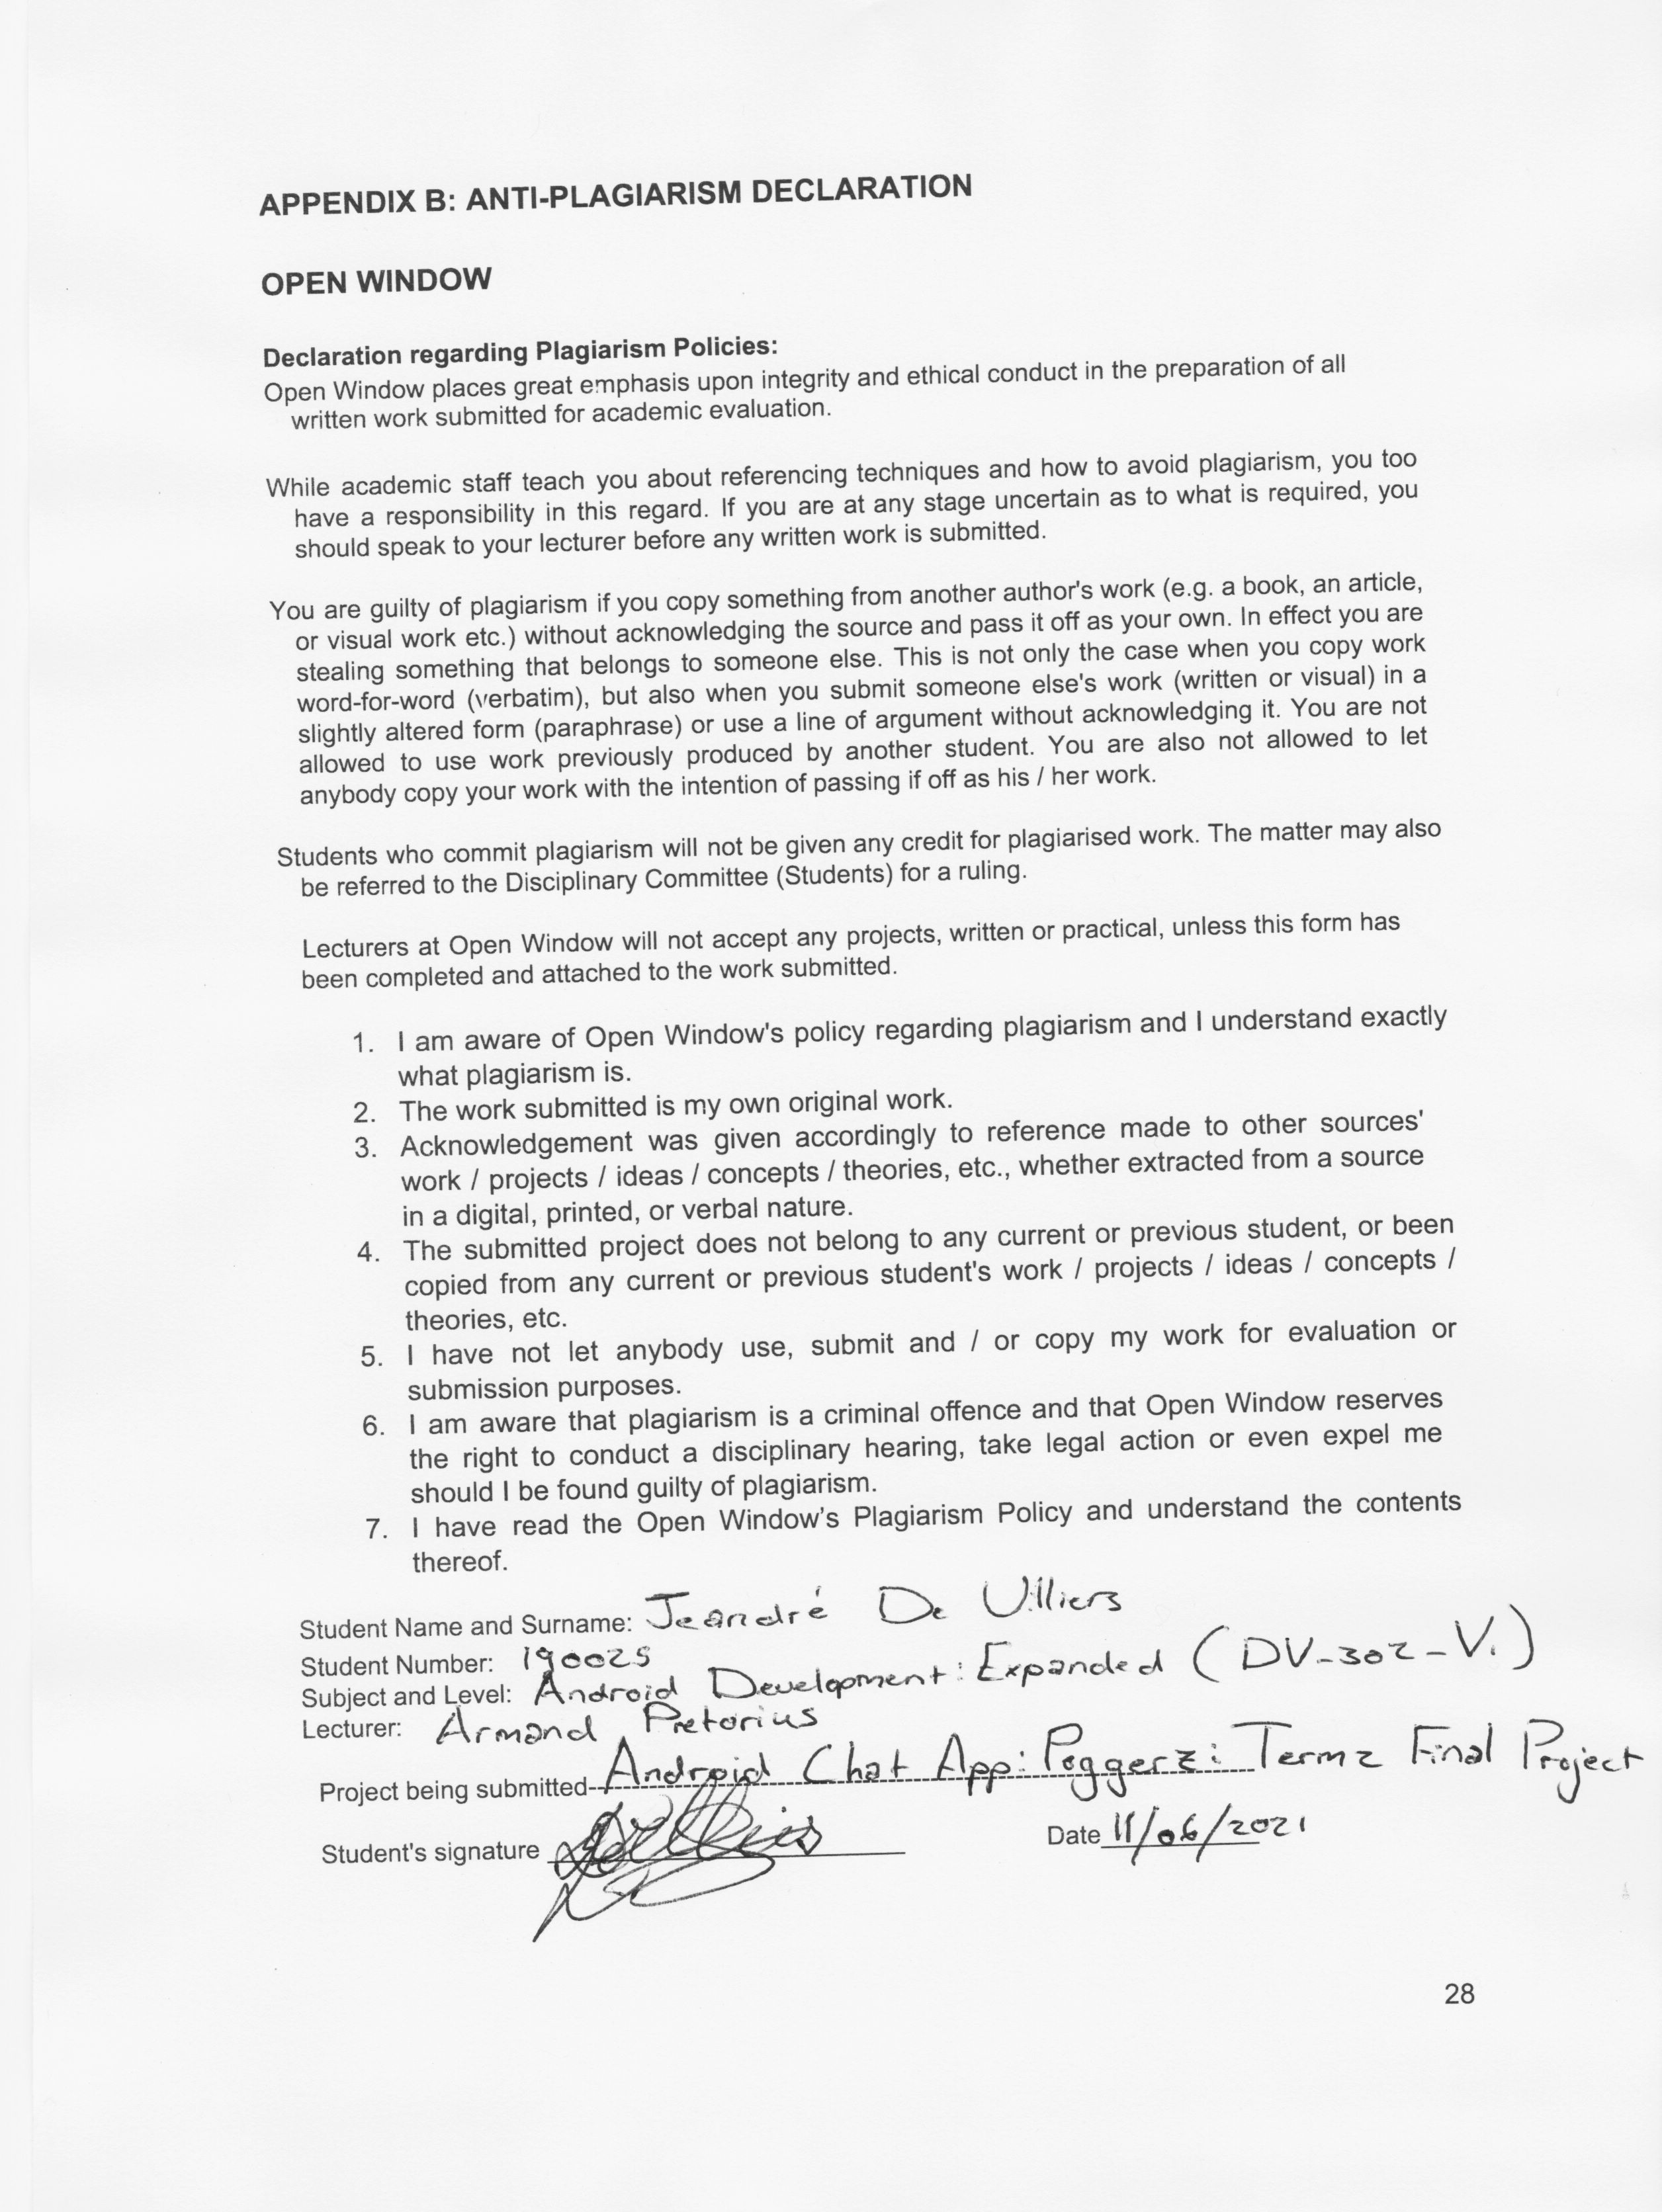 APPENDIX B: ANTI-PLAGIARISM DECLARATION
OPEN WINDOW
Declaration regarding Plagiarism Policies:
Open Window places great emphasis upon integrity and ethical conduct in the preparation of all
written work submitted for academic evaluation.
While academic staff teach you about referencing techniques and how to avoid plagiarism, you too
have a responsibility in this regard. If you are at any stage uncertain as to what is required, you
should speak to your lecturer before any written work is submitted.
You are guilty of plagiarism if you copy something from another author's work (e.g. a book, an article,
or visual work etc.) without acknowledging the source and pass it off as your own. In effect you are
stealing something that belongs to someone else. This is not only the case when you copy work
word-for-word (verbatim), but also when you submit someone else's work (written or visual) in a
slightly altered form (paraphrase) or use a line of argument without acknowledging it. You are not
allowed to use work previously produced by another student. You are also not allowed to let
anybody copy your work with the intention of passing if off as his / her work.
Students who commit plagiarism will not be given any credit for plagiarised work. The matter may also
be referred to the Disciplinary Committee (Students) for a ruling.
Lecturers at Open Window will not accept any projects, written or practical, unless this form has
been completed and attached to the work submitted.
1. I am aware of Open Window's policy regarding plagiarism and I understand exactly
what plagiarism is.
2. The work submitted is my own original work.
3. Acknowledgement was given accordingly to reference made to other sources'
work / projects / ideas / concepts / theories, etc., whether extracted from a source
in a digital, printed, or verbal nature.
4. The submitted project does not belong to any current or previous student, or been
copied from any current or previous student's work / projects / ideas / concepts /
theories, etc.
5. I have not let anybody use, submit and / or copy my work for evaluation or
submission purposes.
6. I am aware that plagiarism is a criminal offence and that Open Window reserves
the right to conduct a disciplinary hearing, take legal action or even expel me
should I be found guilty of plagiarism.
7. I have read the Open Window's Plagiarism Policy and understand the contents
thereof.
Student Name and Surname: Jeandré De Villiers
Student Number: 190025
Subject and Level: Android Development: Expanded (DV-302-V.)
Lecturer: Armand Pretorius
Project being submitted Android Chat App: Poggerz: Term 2 Final Project
Student's signature
Date 11/06/2021
28